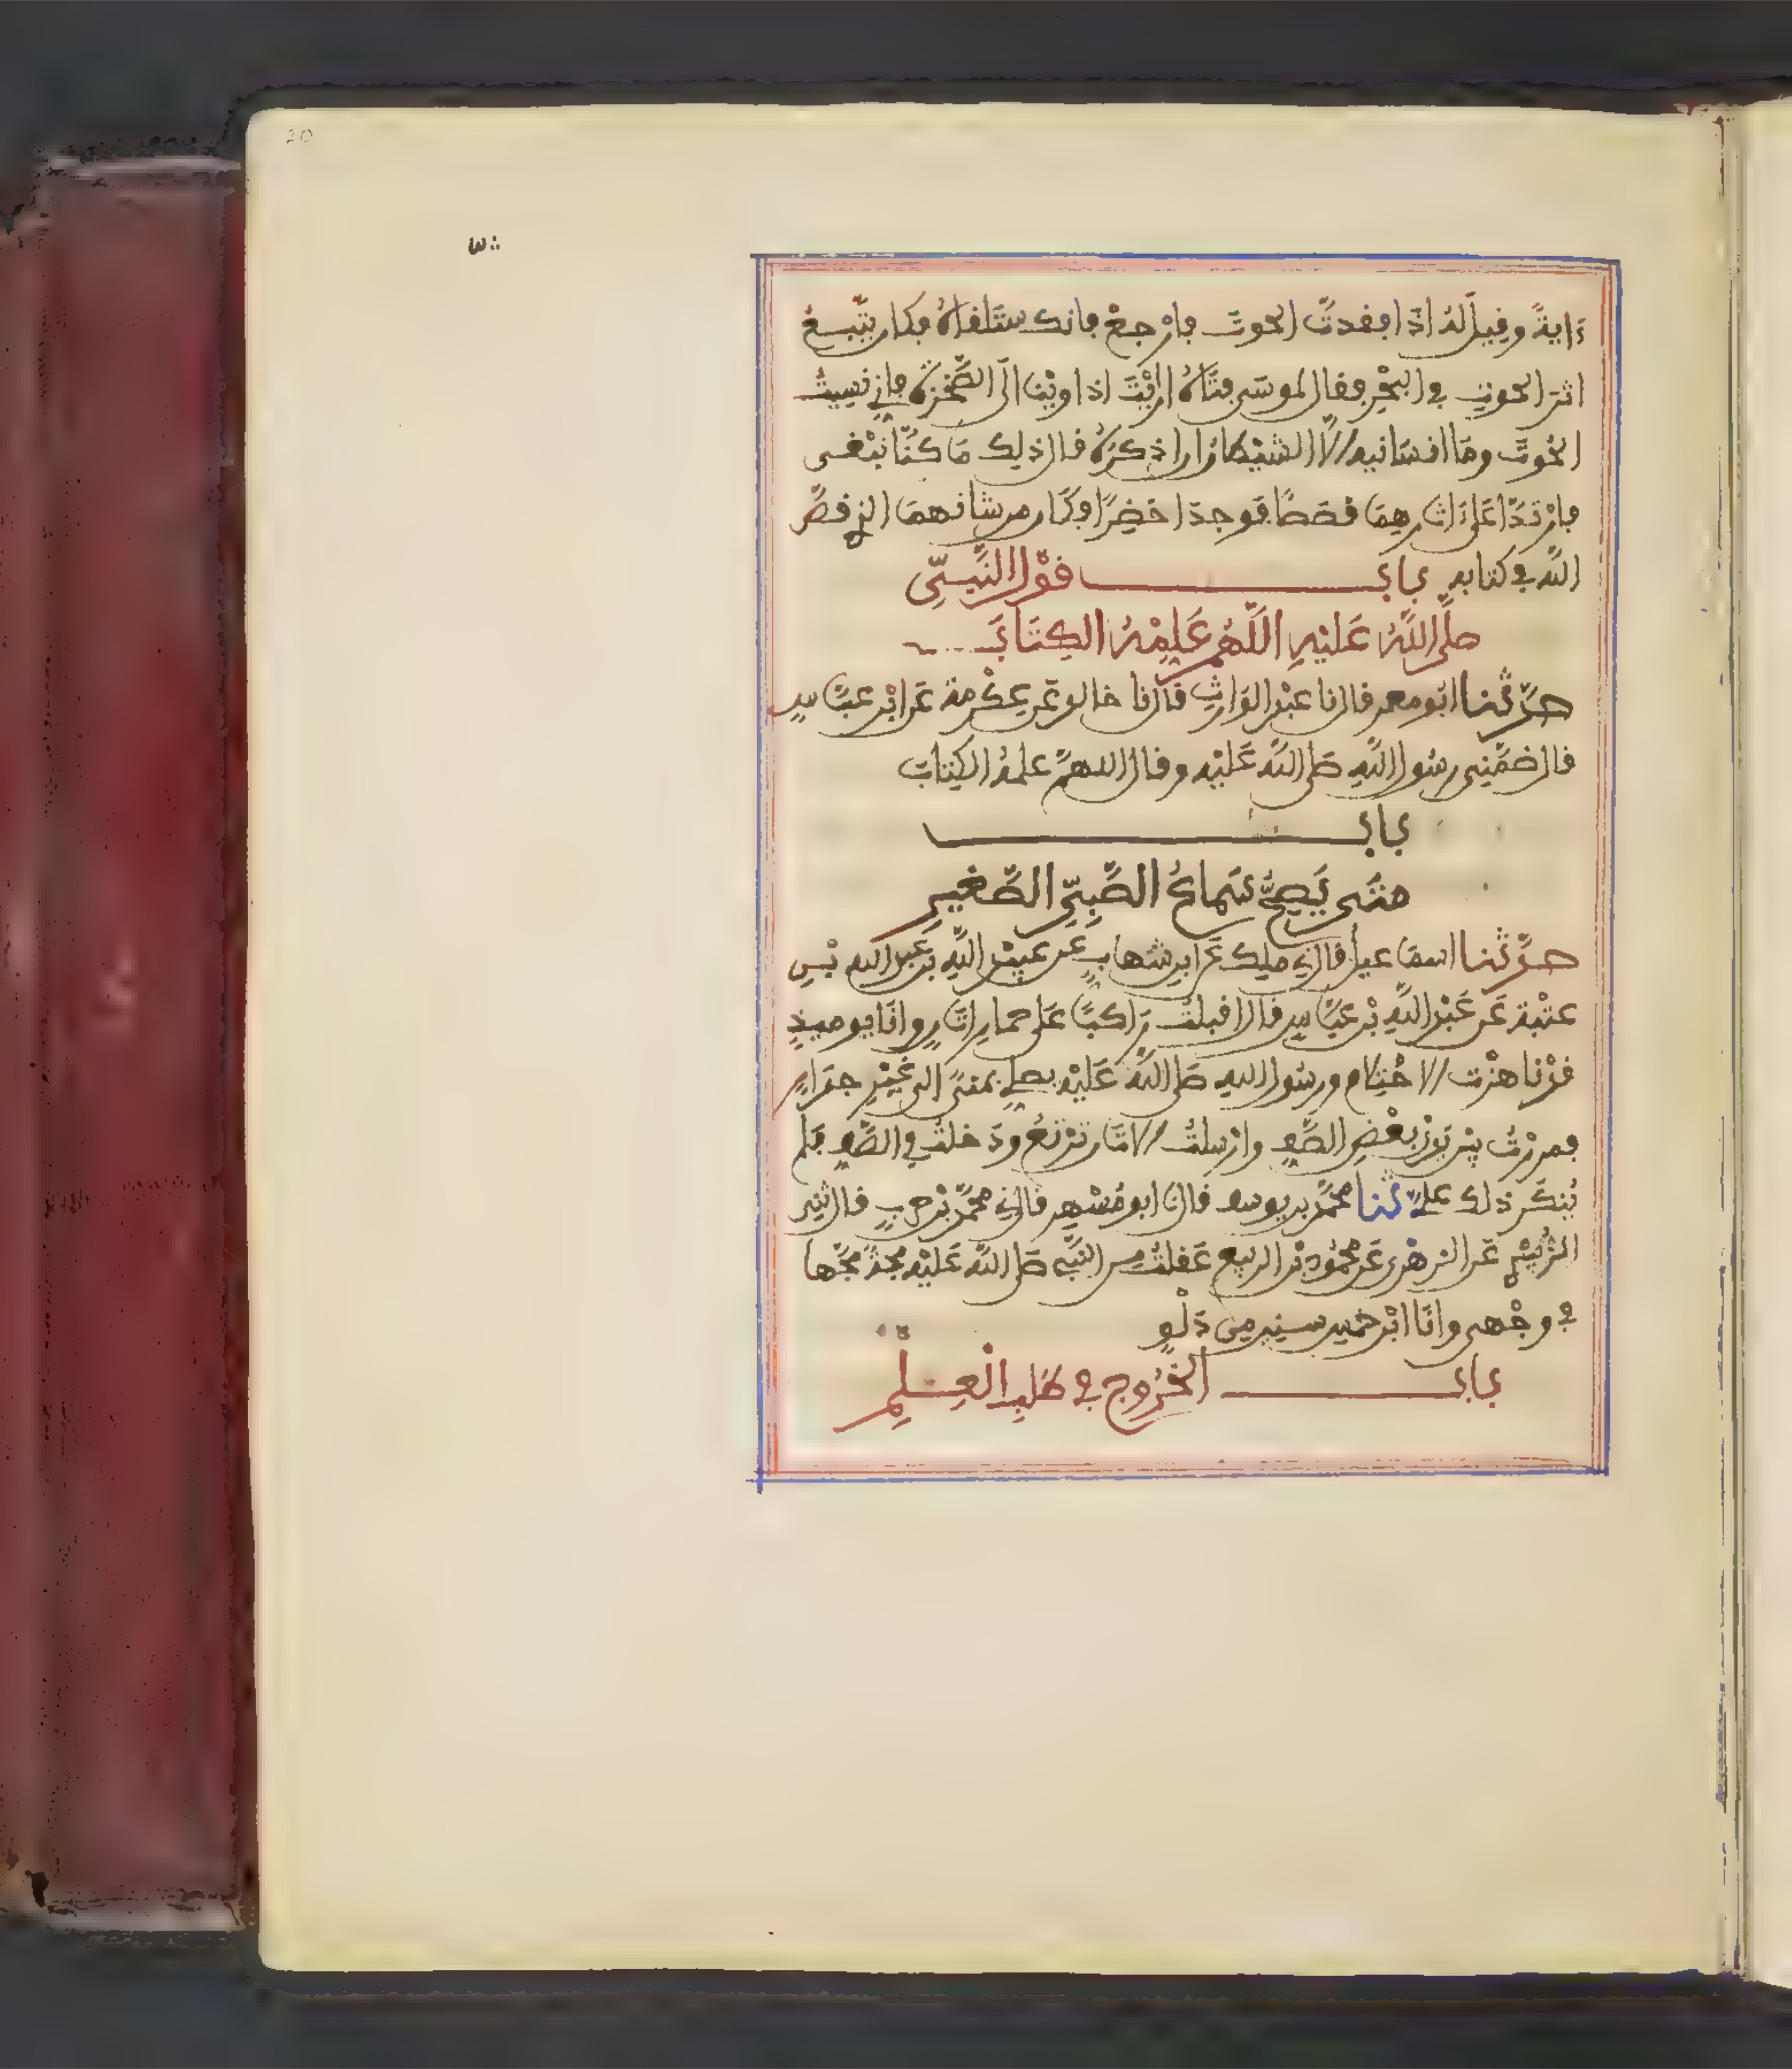 20
ءَايةً وفيل له اذا افقدت الحوت فارجع فانك ستلقاه فكان يتبع
اثر الحوت في البحر فقال لموسى فتاه ارايت اذ اوينا الى الصخرة فاني نسيت
الحوت وما انسانيه الا الشيطان ان اذكره قال ذلك ما كنا نبغى
فارتدا على ءاثارهما قصصًا فوجدا خضرًا وكان من شانهما الذي قص
الله في كتابه باب قول النبي
صلى الله عليه اللهم علمه الكتاب
حدثنا ابو معمر قال نا عبد الوارث قال نا خالد عن عكرمة عن ابن عباس
قال ضمني رسول الله صلى الله عليه وقال اللهم علمه الكتاب
باب
متى يصح سماع الصبي الصغير
حدثنا اسماعيل قال ني ملك عن ابن شهاب عن عبيد الله بن عبد الله بن
عتبة عن عبد الله بن عباس قال اقبلت راكبًا على حمار اتان وانا يوميذ
قد ناهزت الاحتلام ورسول الله صلى الله عليه يصلي بمنى الى غير جدار
فمررت بين يدي بعض الصف وارسلت الاتان ترتع ودخلت في الصف فلم
ينكر ذلك علي ثنا محمد بن يوسف قال نا ابو مسهر قال ني محمد بن حرب قال ثني
الزبيدي عن الزهري عن محمود بن الربيع عقلت من النبي صلى الله عليه مجة مجها
في وجهي وانا ابن خمس سنين من دلو
باب الخروج في طلب العلم